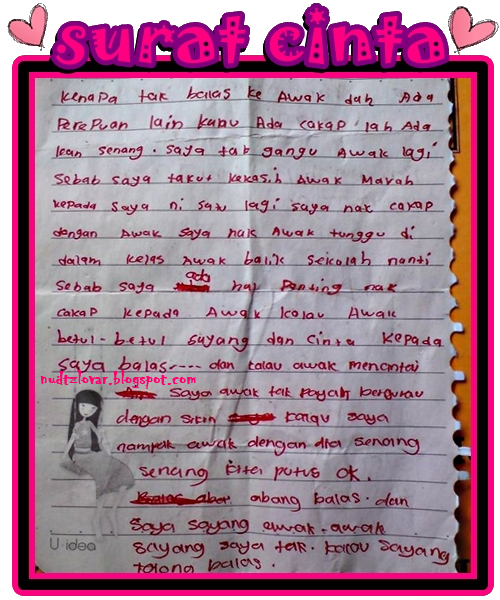 surat cinta
kenapa tak balas ke Awak dah Ada
Perepuan lain kalau Ada cakap lah Ada
kan senang. saya tab gangu Awak lagi
sebab saya takut kekasih Awak Marah
kepada saya ni satu lagi saya nak cakap
dengan Awak saya nak Awak tunggu di
dalam kelas Awak balik sekolah nanti
sebab saya ada hal Penting nak
cakap kepada Awak kalau Awak
betul-betul sayang dan cinta kepada
saya balas---- dan kalau awak mencintai
nudtzlovar.blogspot.com
saya awak tak payah bergurau
dengan saya
nampak awak dengan dia senang
senang kita putus ok.
abang balas. dan
saya sayang awak. awak
U-idea
sayang saya tak. kalau sayang
tolong balas.